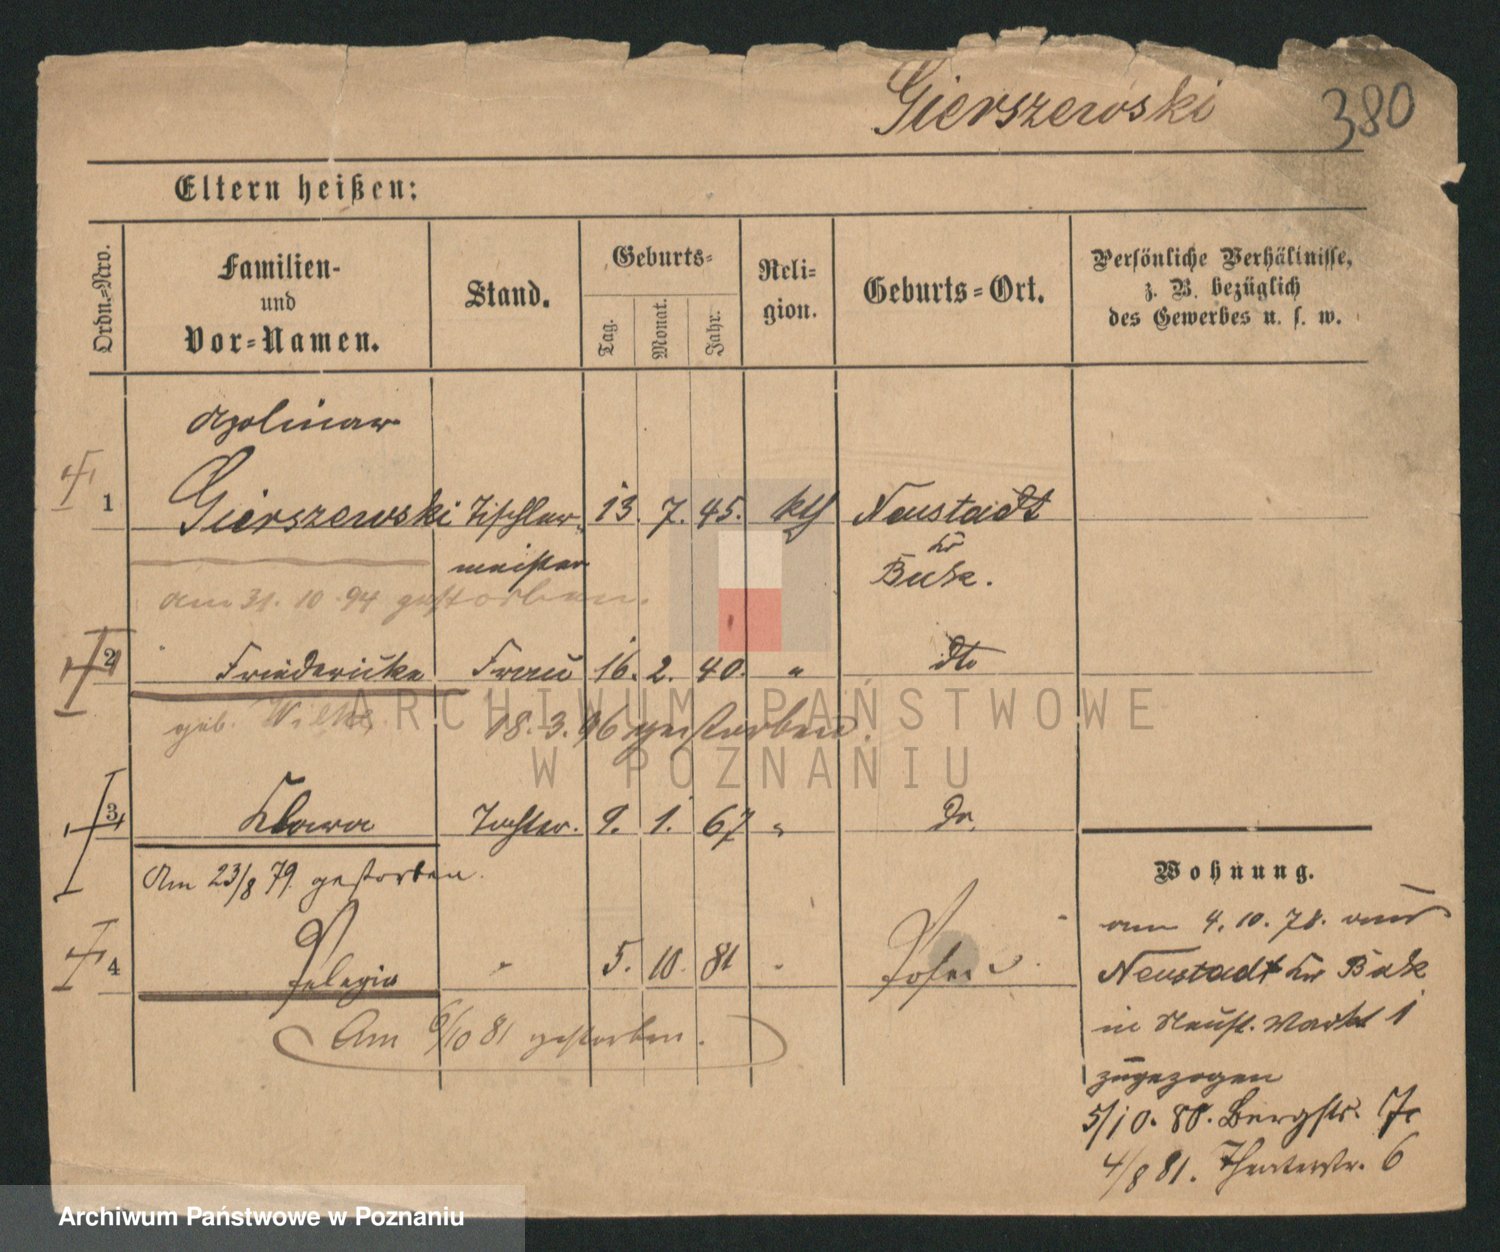 Gierszewski
380
Eltern heißen:
Ordn.=Nro.
Familien-
und
Vor=Namen.
Stand.
Geburts=
Tag.
Monat.
Jahr.
Reli=
gion.
Geburts=Ort.
Persönliche Verhältnisse,
z. B. bezüglich
des Gewerbes u. s. w.
Apolinar
1 Gierszewski Tischler= 13. 7. 45. kth Neustadt
meister
Kr
Buk.
am 31. 10. 94 gestorben.
2 Friedericke Frau 16. 2. 40. " dto
geb. Wilke
18. 3. 96 gestorben.
3 Klara Tochter. 9. 1. 67 " Do.
Am 23/8 79. gestorben.
4 Pelagia " 5. 10. 81 " Posen
Am 6/10 81 gestorben.
Wohnung.
am 4. 10. 78. aus
Neustadt Kr Buk
in Neust. Markt 1
zugezogen
5/10. 80. Bergstr. 7
4/8 81. Theaterstr. 6
ARCHIWUM PAŃSTWOWE
W POZNANIU
Archiwum Państwowe w Poznaniu